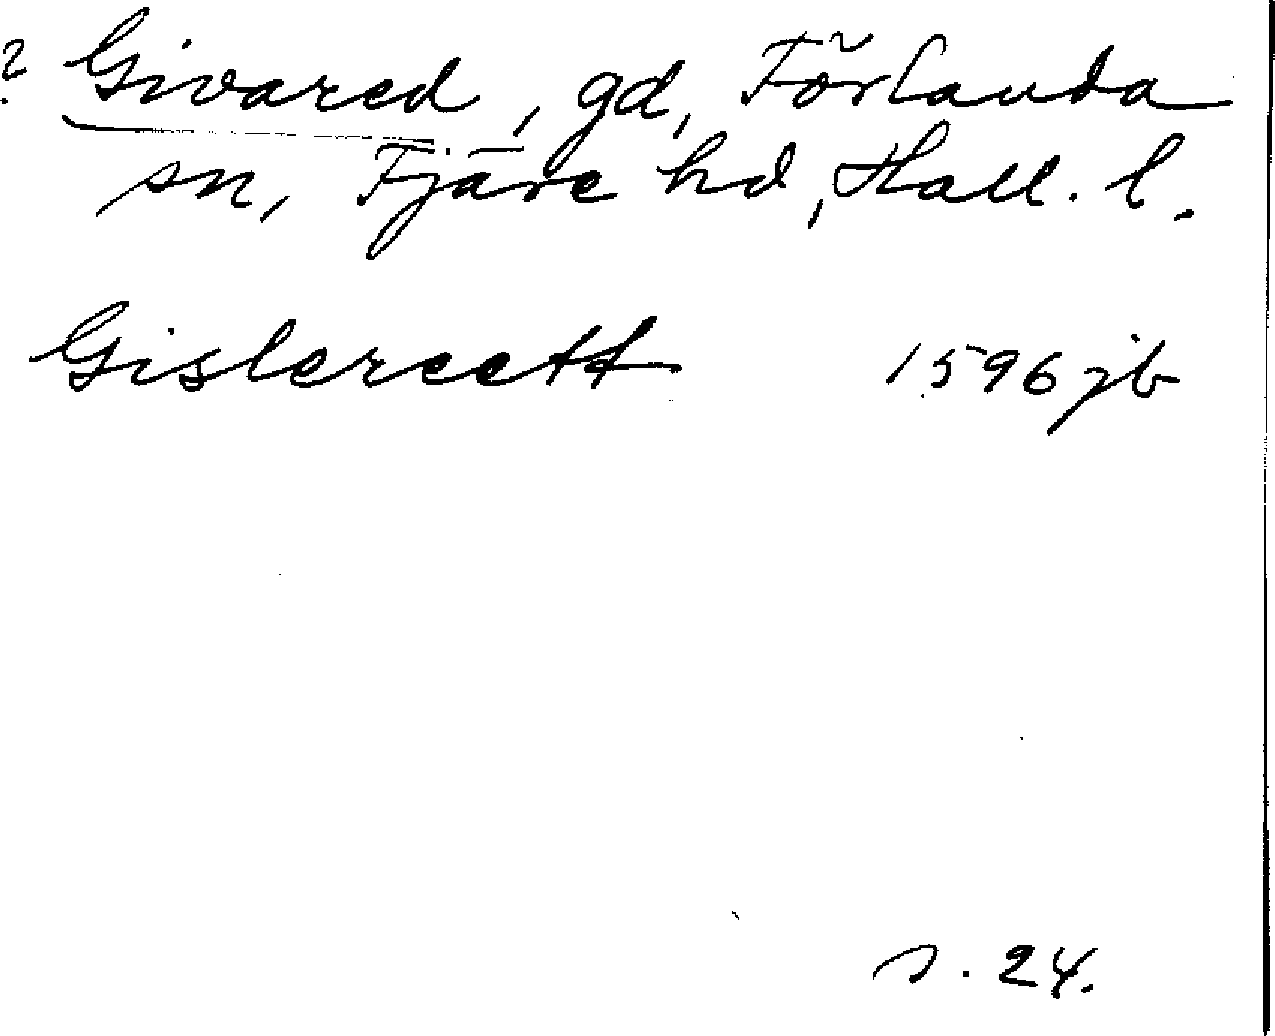 ? Givared, gd, Förlanda
sn, Fjäre hd, Hall. l.
Gislereett 1596 jb
s. 24.